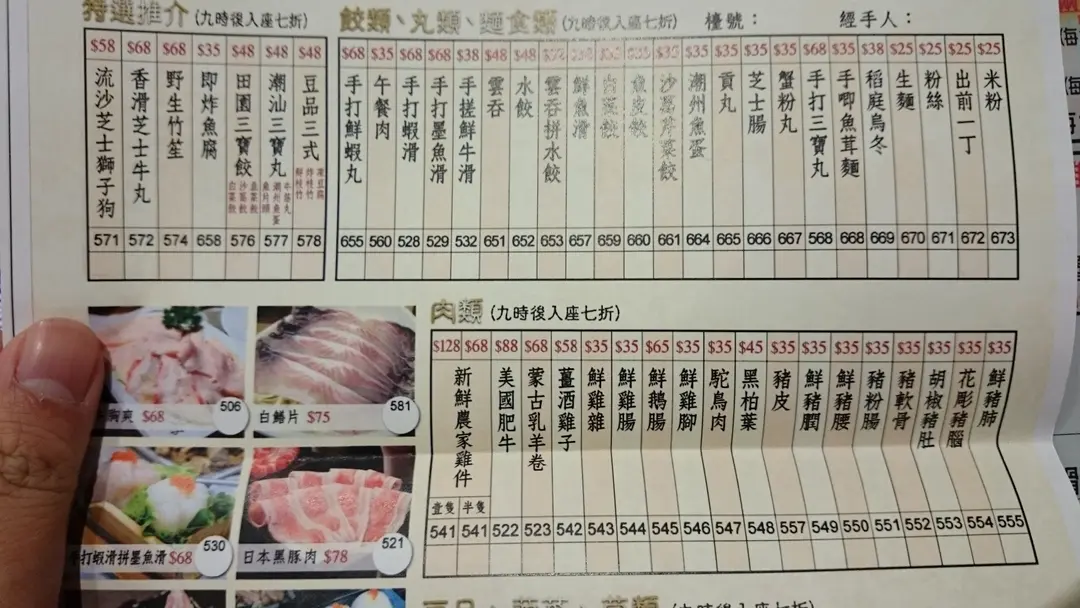 特選推介 (九時後入座七折)
$58 $68 $68 $35 $48 $48 $48
流沙芝士獅子狗
香滑芝士牛丸
野生竹笙
即炸魚腐
田園三寶餃
潮汕三寶丸
豆品三式
571 572 574 658 576 577 578
餃類、丸類、麵食類 (九時後入座七折) 檯號： 經手人：
$68 $35 $68 $68 $38 $48 $48 $35 $35 $35 $35 $35 $68 $35 $38 $25 $25 $25 $25
手打鮮蝦丸
午餐肉
手打蝦滑
手打墨魚滑
手搓鮮牛滑
雲吞
水餃
雲吞拼水餃
鮮魚滑
魚皮餃
潮州魚蛋
貢丸
芝士腸
蟹粉丸
手打三寶丸
手唧魚茸麵
稻庭烏冬
生麵
粉絲
出前一丁
米粉
655 560 528 529 532 651 652 653 657 659 660 661 664 665 666 667 568 668 669 670 671 672 673
胸爽 $68 506
白鱔片 $75 581
打蝦滑拼墨魚滑 $68 530
日本黑豚肉 $78 521
肉類 (九時後入座七折)
$128 $68 $88 $68 $58 $35 $35 $65 $35 $35 $45 $35 $35 $35 $35 $35 $35 $35 $35
新鮮農家雞件
壹隻 半隻
美國肥牛
蒙古乳羊卷
薑酒雞子
鮮雞雜
鮮雞腸
鮮鵝腸
鮮雞腳
駝鳥肉
黑柏葉
豬皮
鮮豬膶
鮮豬腰
豬粉腸
豬軟骨
胡椒豬肚
花彫豬腦
鮮豬肺
541 541 522 523 542 543 544 545 546 547 548 557 549 550 551 552 553 554 555
(九時後入座七折)